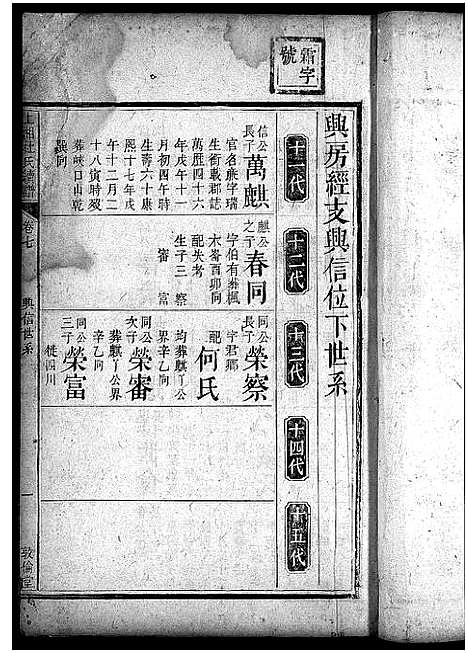 霜字號
興房經支興信位下世系
十一代
十二代
十三代
十四代
十五代
信公長子
萬麒
官名麻字瑞
生銜載郡誌
萬歷四十六
年戊午十一
月初四午時
生壽六十康
熙十七年戊
午十二月二
十八寅時歿
葬峽口山乾
巽向
麒公之子
春同
字伯有葬楓
木崙酉卯向
配失考
生子三 察
審 富
同公長子
榮察
字君鄉
配
何氏
均葬麒丫公
界辛乙向
同公次子
榮審
葬麒丫公界
辛乙向
同公三子
榮富
從四川
杜氏
卷七
興信世系
一
敦倫堂